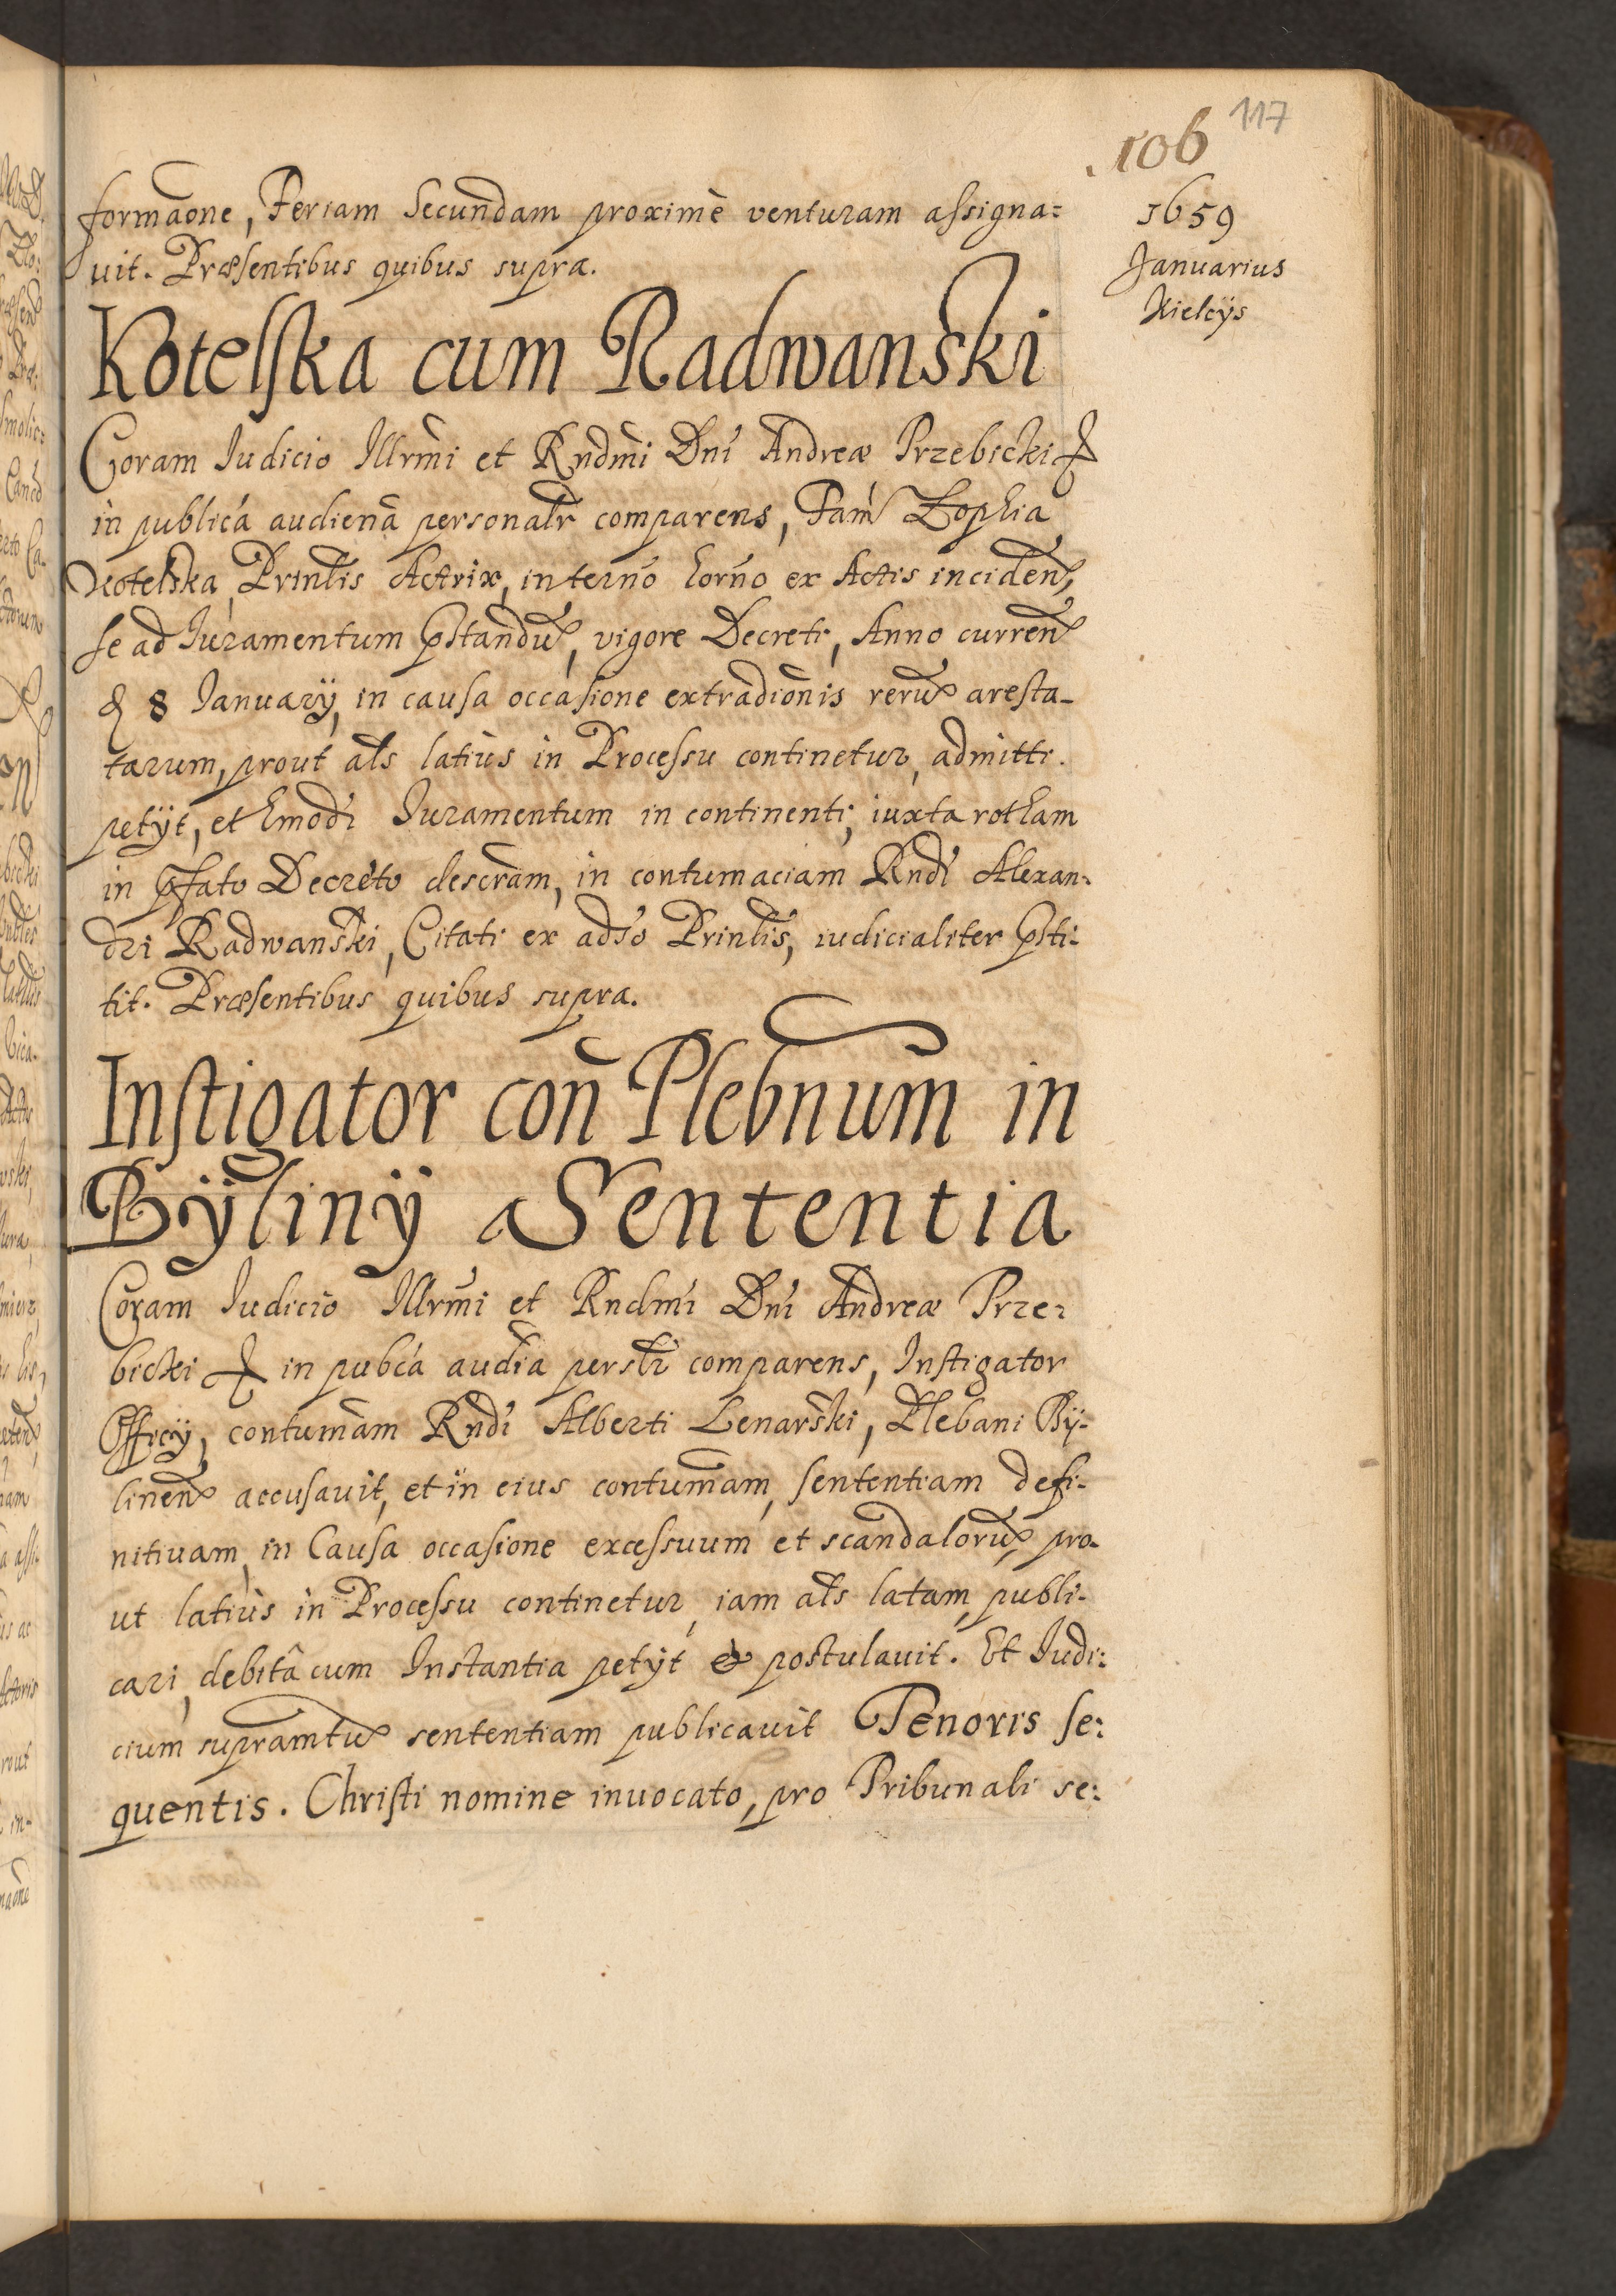 106 117
1659
Januarius
Kielcijs
formãone, Feriam Secundam proximè venturam assigna=
uit. Præsentibus quibus supra.
Kotelska cum Radwanski
Coram Iudicio Illrmi et Rndmi Dni Andreæ Przebicki
in publicá audiena personalr comparens, Fam Zophia
Kotelska, Prinlis Actrix, in terno horno ex Actis inciden,
se ad Iuramentum pstandu, vigore Decreti, Anno curren
8 Ianuarij, in causa occasione extradionis reru aresta-
tarum, prout als latiùs in Processu continetur, admitti.
petijt, et hmodi Iuramentum in continenti, iuxta rotham
in pfato Decreto descram, in contumaciam Rndi Alexan-
dri Radwanski, Citati ex adso Prinlis, iudicialiter psti-
tit. Præsentibus quibus supra.
Instigator con Plebnum in
Bÿlinÿ Sententia
Coram Iudicio Illrmi et Rndmi Dni Andreæ Prze-
bicki in pubca audia perslr comparens, Instigator
Officij, contumam Rndi Alberti Lenarski, Plebani Bÿ-
linen accusauit, et in eius contumam, sententiam defi-
nitiuam, in Causa occasione excessuum et scandaloru, pro-
ut latiùs in Processu continetur, iam als latam, publi-
cari, debitâ cum Instantia petijt & postulauit. Et Iudi-
cium supramtu sententiam publicauit Tenoris se-
quentis. Christi nomine inuocato, pro Tribunali se: